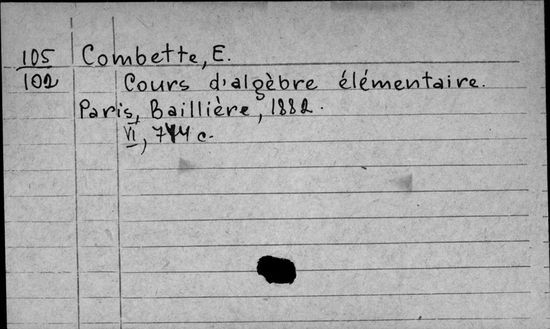 105 Combette, E.
102 Cours d'algèbre élémentaire.
Paris, Baillière, 1882.
VI, 744 c.